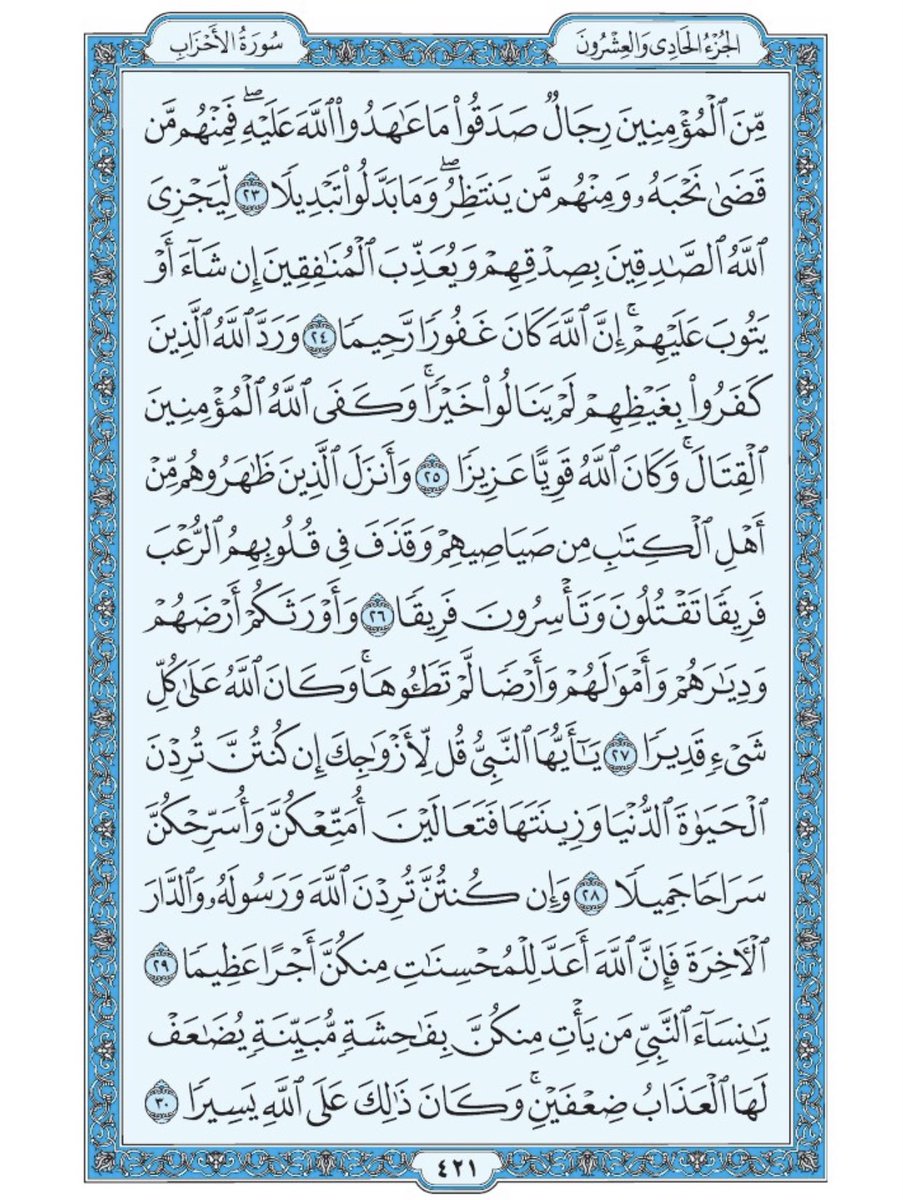 الجُزْءُ الحَادِى وَالعِشْرُونَ
سُورَةُ الأَحْزَابِ
مِّنَ ٱلْمُؤْمِنِينَ رِجَالٌ صَدَقُوا۟ مَا عَٰهَدُوا۟ ٱللَّهَ عَلَيْهِ ۖ فَمِنْهُم مَّن
قَضَىٰ نَحْبَهُۥ وَمِنْهُم مَّن يَنتَظِرُ ۖ وَمَا بَدَّلُوا۟ تَبْدِيلًا ٢٣ لِّيَجْزِىَ
ٱللَّهُ ٱلصَّٰدِقِينَ بِصِدْقِهِمْ وَيُعَذِّبَ ٱلْمُنَٰفِقِينَ إِن شَآءَ أَوْ
يَتُوبَ عَلَيْهِمْ ۚ إِنَّ ٱللَّهَ كَانَ غَفُورًا رَّحِيمًا ٢٤ وَرَدَّ ٱللَّهُ ٱلَّذِينَ
كَفَرُوا۟ بِغَيْظِهِمْ لَمْ يَنَالُوا۟ خَيْرًا ۚ وَكَفَى ٱللَّهُ ٱلْمُؤْمِنِينَ
ٱلْقِتَالَ ۚ وَكَانَ ٱللَّهُ قَوِيًّا عَزِيزًا ٢٥ وَأَنزَلَ ٱلَّذِينَ ظَٰهَرُوهُم مِّنْ
أَهْلِ ٱلْكِتَٰبِ مِن صَيَاصِيهِمْ وَقَذَفَ فِى قُلُوبِهِمُ ٱلرُّعْبَ
فَرِيقًا تَقْتُلُونَ وَتَأْسِرُونَ فَرِيقًا ٢٦ وَأَوْرَثَكُمْ أَرْضَهُمْ
وَدِيَٰرَهُمْ وَأَمْوَٰلَهُمْ وَأَرْضًا لَّمْ تَطَـُٔوهَا ۚ وَكَانَ ٱللَّهُ عَلَىٰ كُلِّ
شَىْءٍ قَدِيرًا ٢٧ يَٰٓأَيُّهَا ٱلنَّبِىُّ قُل لِّأَزْوَٰجِكَ إِن كُنتُنَّ تُرِدْنَ
ٱلْحَيَوٰةَ ٱلدُّنْيَا وَزِينَتَهَا فَتَعَالَيْنَ أُمَتِّعْكُنَّ وَأُسَرِّحْكُنَّ
سَرَاحًا جَمِيلًا ٢٨ وَإِن كُنتُنَّ تُرِدْنَ ٱللَّهَ وَرَسُولَهُۥ وَٱلدَّارَ
ٱلْـَٔاخِرَةَ فَإِنَّ ٱللَّهَ أَعَدَّ لِلْمُحْسِنَٰتِ مِنكُنَّ أَجْرًا عَظِيمًا ٢٩
يَٰنِسَآءَ ٱلنَّبِىِّ مَن يَأْتِ مِنكُنَّ بِفَٰحِشَةٍ مُّبَيِّنَةٍ يُضَٰعَفْ
لَهَا ٱلْعَذَابُ ضِعْفَيْنِ ۚ وَكَانَ ذَٰلِكَ عَلَى ٱللَّهِ يَسِيرًا ٣٠
٤٢١